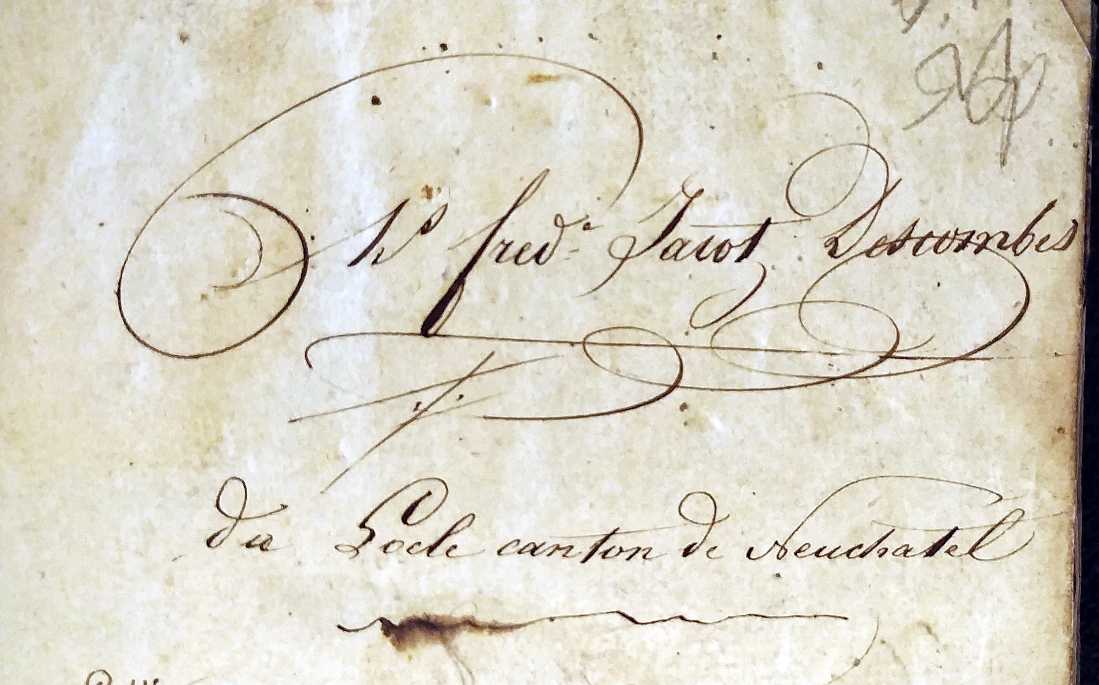 hs fred. Jacot Descombes
du Locle canton de Neuchatel